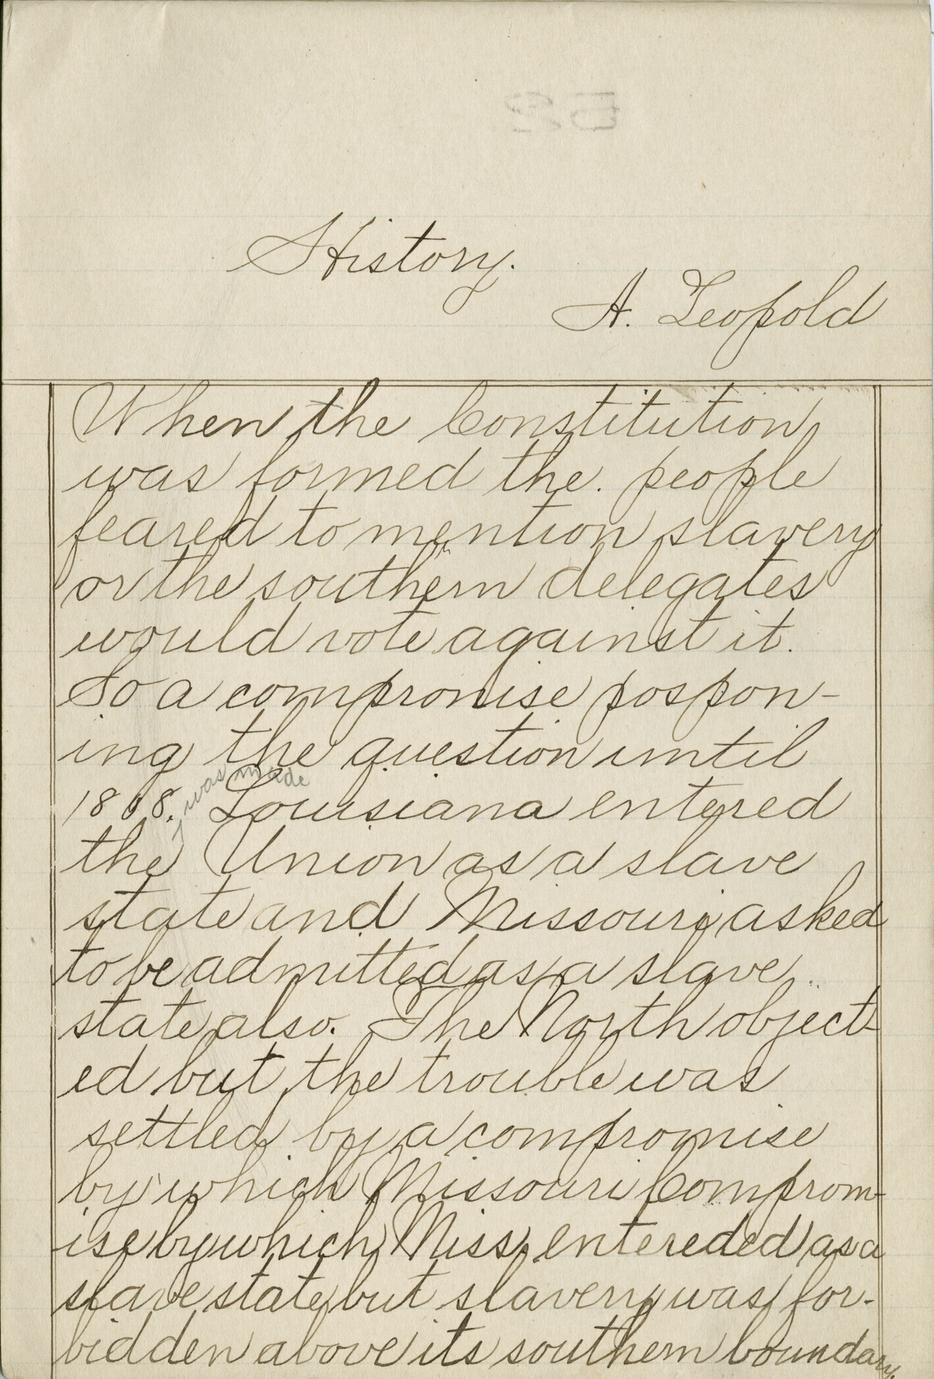 History.
A. Leopold
When the Constitution
was formed the. people
feared to mention slavery
or the southern delegates
would vote against it.
So a compromise pospon-
ing the question until
was made
1808. Louisiana entered
the Union as a slave
state and Missouri asked
to be admitted as a slave
state also. The North object-
ed but the trouble was
settled by a compromise
by which Missouri Comprom-
ise by which Miss. entereded as a
slave state but slavery was for-
bidden above its southern boundary.